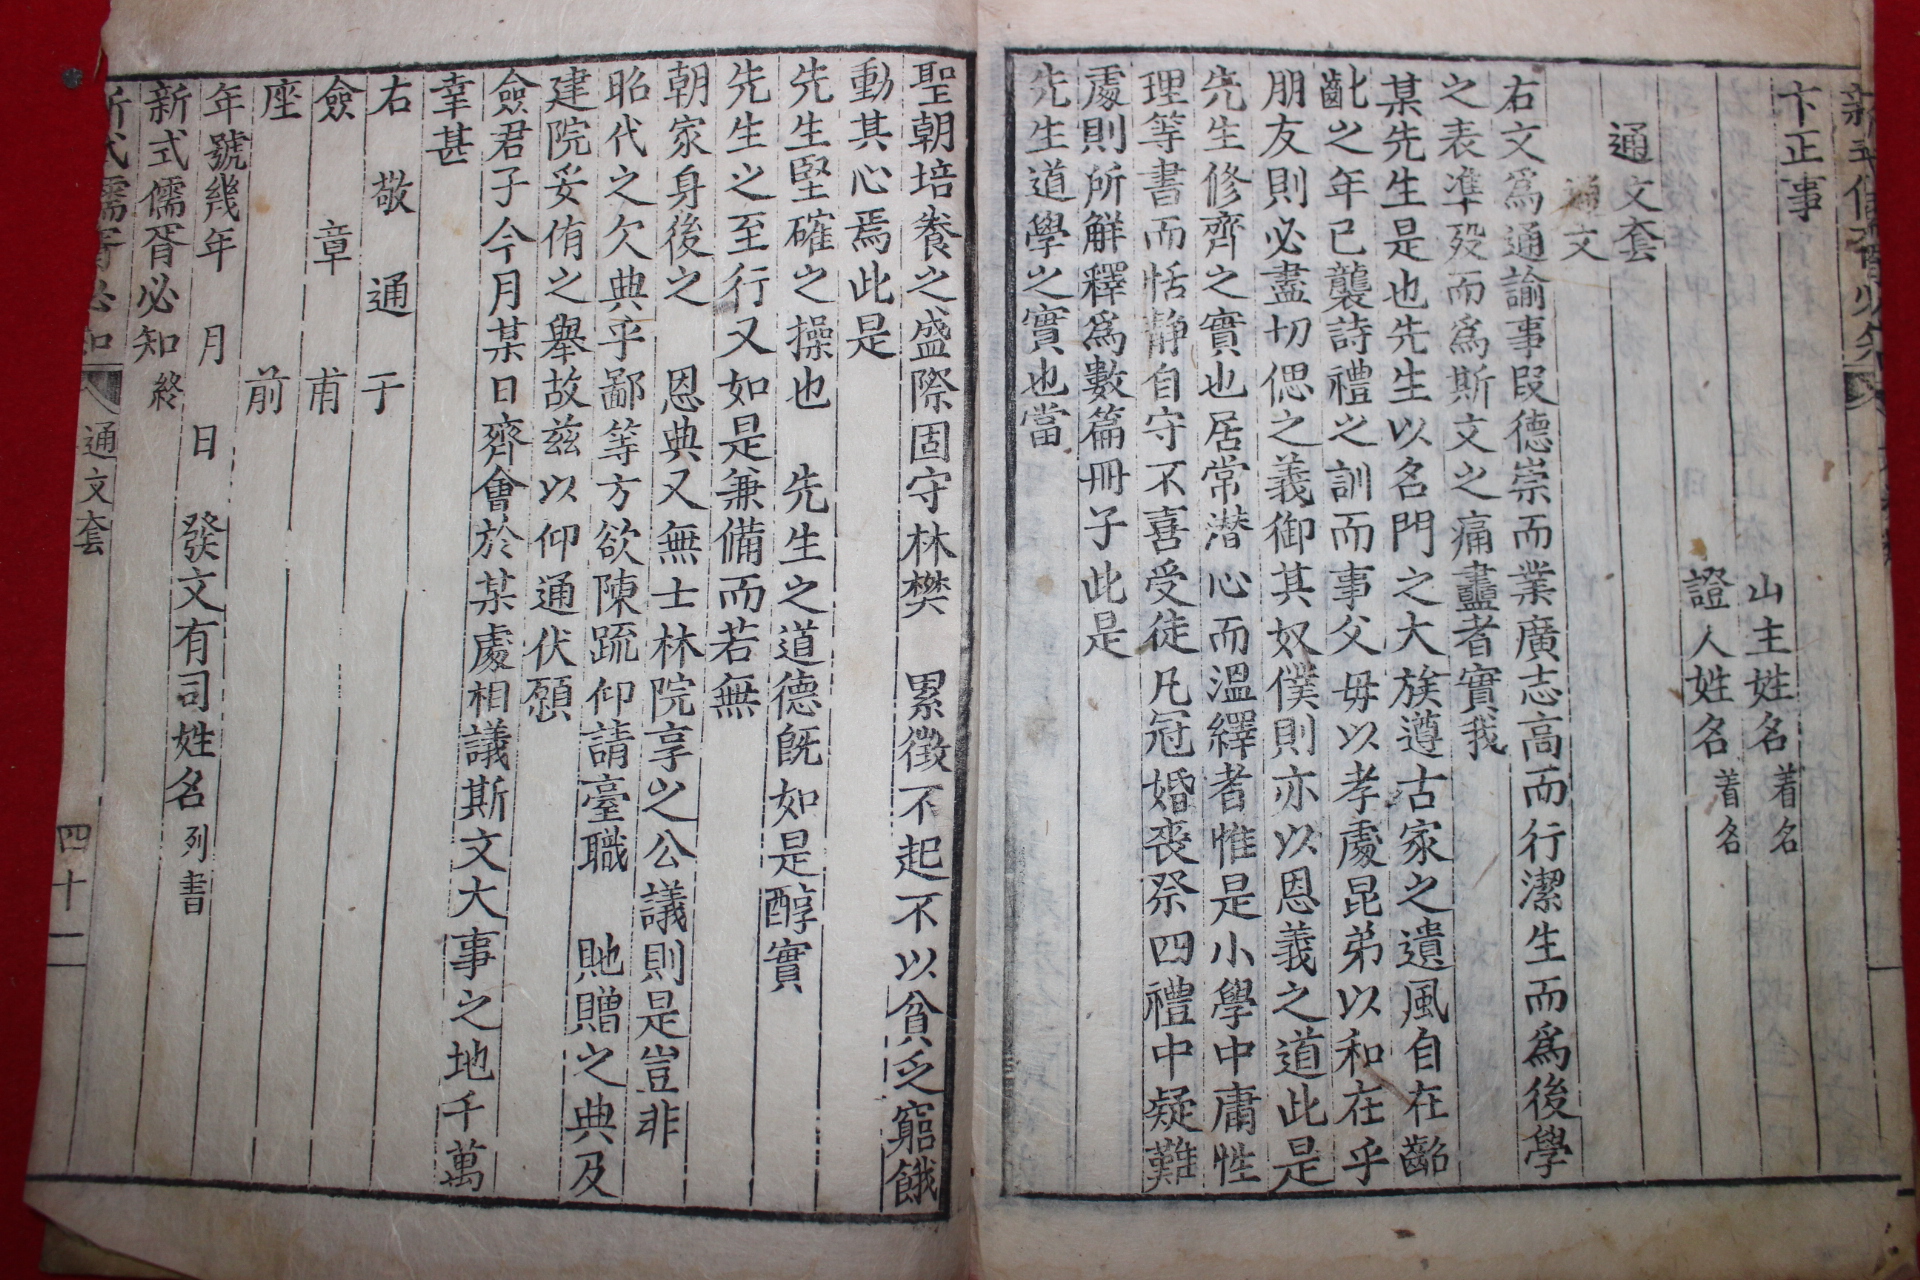 卞正事
山主姓名着名
證人姓名着名
通文套
通文
右文爲通諭事段德崇而業廣志高而行潔生而爲後學
之表準歿而爲斯文之痛衋者實我
某先生是也先生以名門之大族遵古家之遺風自在齠
齔之年已襲詩禮之訓而事父母以孝處昆弟以和在乎
朋友則必盡切偲之義御其奴僕則亦以恩義之道此是
先生修齊之實也居常潜心而溫繹者惟是小學中庸性
理等書而恬靜自守不喜受徒凡冠婚喪祭四禮中疑難
處則所解釋爲數篇冊子此是
先生道學之實也當
聖朝培養之盛際固守林樊 累徵不起不以貧乏窮餓
動其心焉此是
先生堅確之操也 先生之道德旣如是醇實
先生之至行又如是兼備而若無
朝家身後之 恩典又無士林院享之公議則是豈非
昭代之欠典乎鄙等方欲陳疏仰請臺職 貤贈之典及
建院妥侑之舉故茲以仰通伏願
僉君子今月某日齊會於某處相議斯文大事之地千萬
幸甚
右 敬 通 于
僉 章 甫
座 前
年號幾年 月 日 發文有司姓名列書
新式儒胥必知終
新式儒胥必知 通文套 四十一